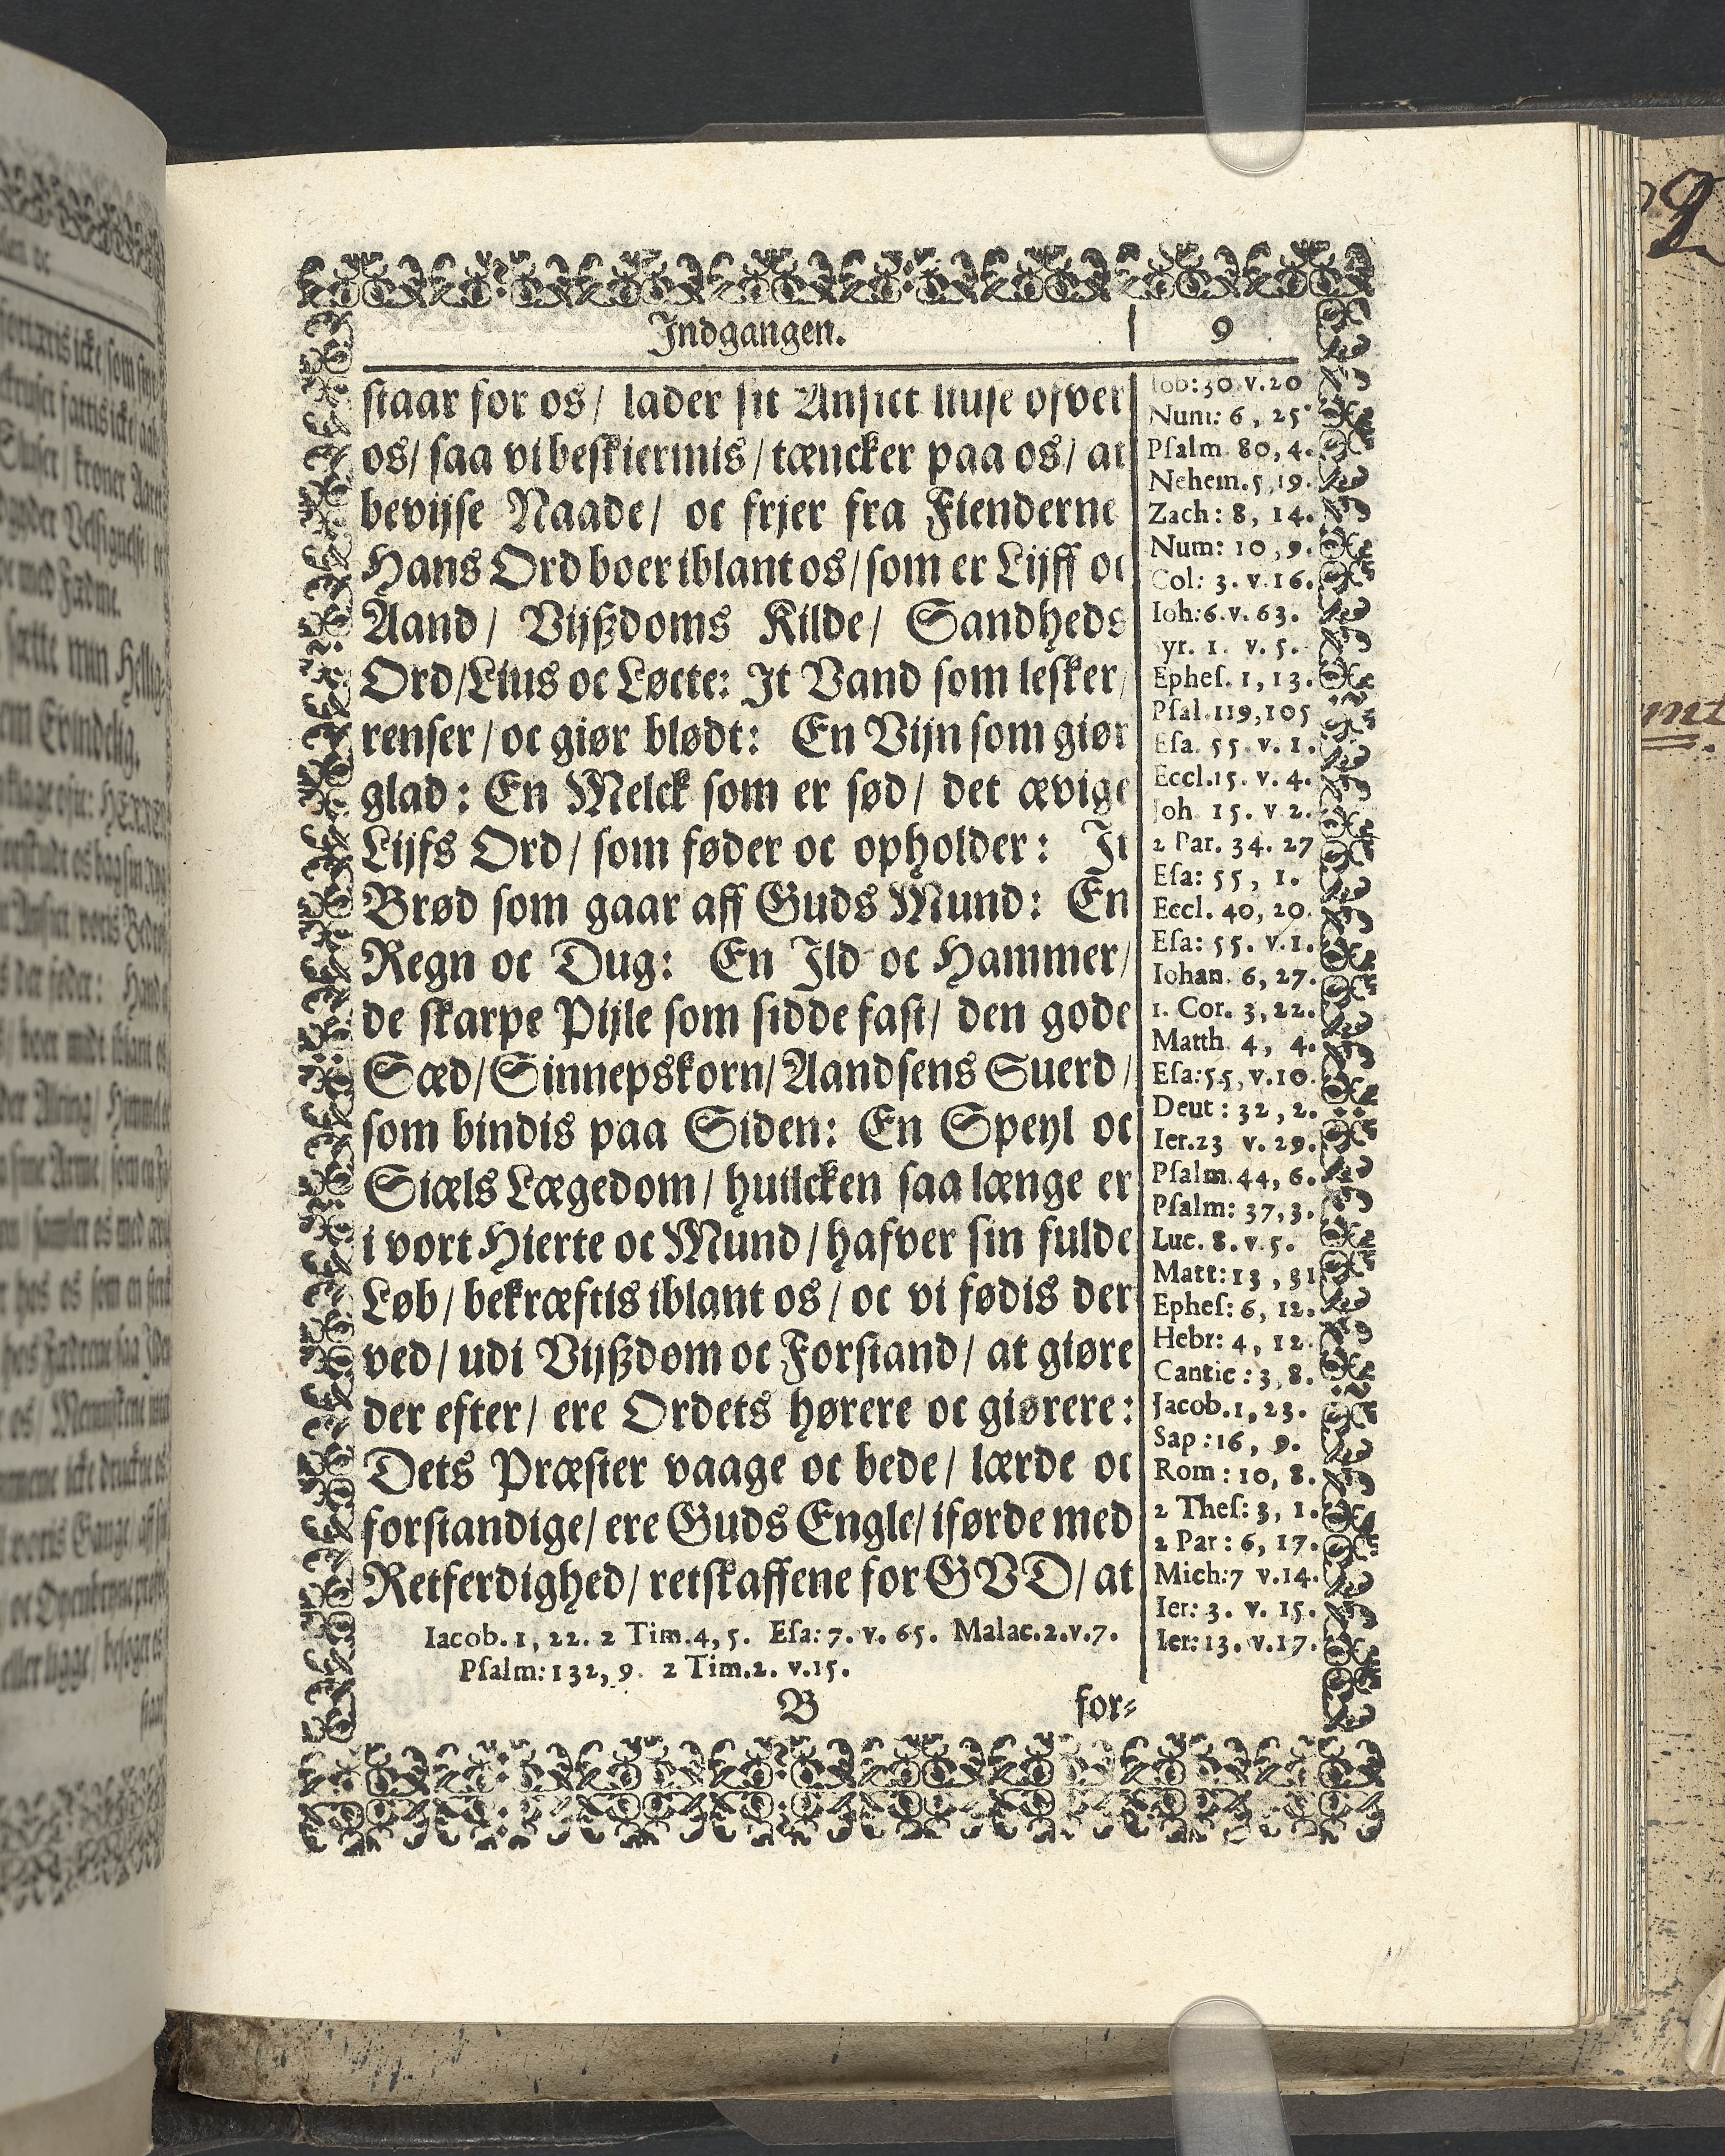 Indgangen. 9
staar for os/ lader sit Ansict liuse ofver
os/ saa vi beskiermis/ tæncker paa os/ at
bevijse Naade/ oc frjer fra Fienderne
Hans Ord boer iblant os/ som er Lijff oc
Aand/ Vijßdoms Kilde/ Sandheds
Ord/ Lius oc Løcte: It Vand som lesker/
renser/ oc giør blødt: En Vijn som giør
glad: En Melck som er sød/ det ævige
Lijfs Ord/ som føder oc opholder: It
Brød som gaar aff Guds Mund: En
Regn oc Dug: En Ild oc Hammer/
de skarpe Pijle som sidde fast/ den gode
Sæd/ Sinnepskorn/ Aandsens Suerd/
som bindis paa Siden: En Speyl oc
Siæls Lægedom/ huilcken saa længe er
i vort Hierte oc Mund/ hafver sin fulde
Løb/ bekræftis iblant os/ oc vi fødis der
ved/ udi Vijßdom oc Forstand/ at giøre
der efter/ ere Ordets hørere oc giørere:
Dets Præster vaage oc bede/ lærde oc
forstandige/ ere Guds Engle/ iførde med
Retferdighed/ retskaffene for GVD/ at
Iacob. 1, 22. 2 Tim. 4, 5. Esa: 7. v. 65. Malac. 2. v. 7.
Psalm: 132, 9. 2 Tim. 2. v. 15.
B for⸗
Iob: 30 v. 20
Num: 6, 25
Psalm. 80, 4.
Nehem. 5, 19.
Zach: 8, 14.
Num: 10, 9.
Col: 3. v. 16.
Ioh: 6. v. 63.
yr. 1. v. 5.
Ephes. 1, 13.
Psal. 119, 105
Esa. 55. v. 1.
Eccl. 15. v. 4.
Joh 15. v 2.
2 Par. 34. 27
Esa: 55, 1.
Eccl. 40, 20.
Esa: 55. v. 1.
Iohan. 6, 27.
1. Cor. 3, 22.
Matth 4, 4.
Esa: 55, v. 10.
Deut: 32, 2.
Ier. 23 v. 29.
Psalm. 44, 6.
Psalm: 37, 3.
Luc. 8. v. 5.
Matt: 13, 31
Ephes: 6, 12.
Hebr: 4, 12.
Cantic: 3, 8.
Jacob. 1, 23.
Sap: 16, 9.
Rom: 10, 8.
2 Thes: 3, 1.
2 Par: 6, 17.
Mich: 7 v. 14.
Ier: 3. v. 15.
Ier: 13. v. 17.